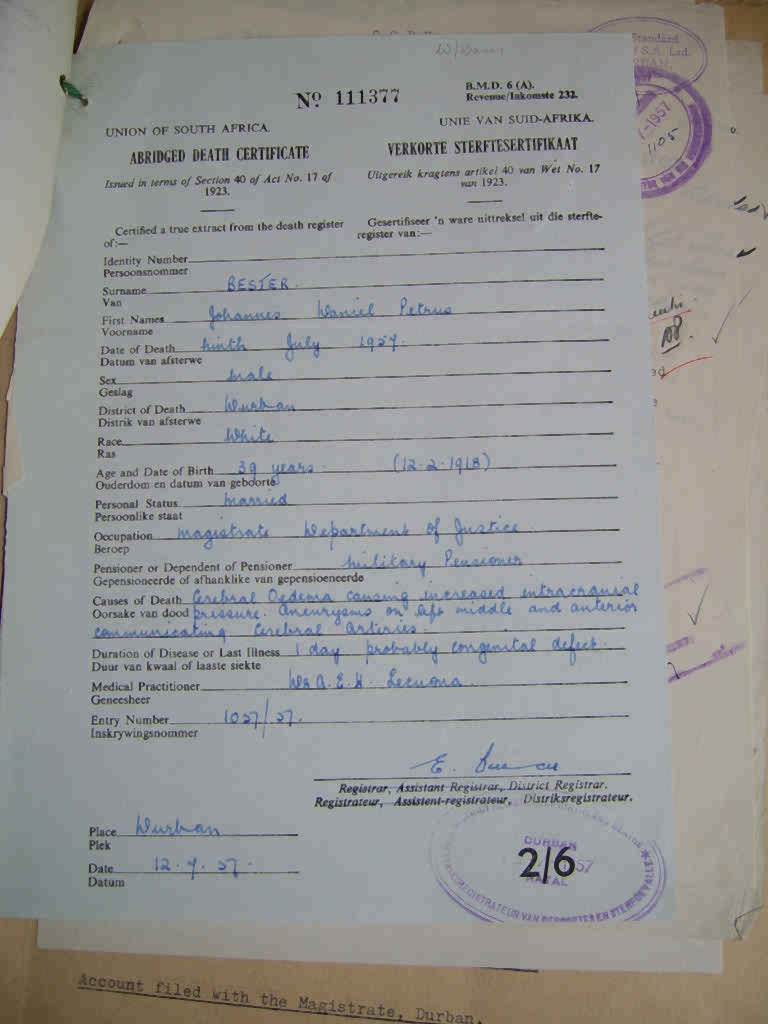 Nº 111377
B.M.D. 6 (A).
Revenue/Inkomste 232.
UNION OF SOUTH AFRICA.
UNIE VAN SUID-AFRIKA.
ABRIDGED DEATH CERTIFICATE
VERKORTE STERFTESERTIFIKAAT
Issued in terms of Section 40 of Act No. 17 of
1923.
Uitgereik kragtens artikel 40 van Wet No. 17
van 1923.
Certified a true extract from the death register
of:—
Gesertifiseer 'n ware uittreksel uit die sterfte-
register van:—
Identity Number
Persoonsnommer
Surname BESTER.
Van
First Names Johannes Daniel Petrus
Voorname
Date of Death Ninth July 1957.
Datum van afsterwe
Sex Male
Geslag
District of Death Durban
Distrik van afsterwe
Race White
Ras
Age and Date of Birth 39 years. (12-2-1918)
Ouderdom en datum van geboorte
Personal Status Married
Persoonlike staat
Occupation Magistrate Department of Justice.
Beroep
Pensioner or Dependent of Pensioner Military Pensioner
Gepensioneerde of afhanklike van gepensioeneerde
Causes of Death Cerebral Oedema causing increased intracranial
Oorsake van dood pressure. Aneurysms on left middle and anterior
communicating Cerebral Arteries.
Duration of Disease or Last Illness 1 day probably congenital defect.
Duur van kwaal of laaste siekte
Medical Practitioner Dr A.E.H. Lecuona.
Geneesheer
Entry Number 1057/57.
Inskrywingsnommer
E.
Registrar, Assistant Registrar, District Registrar.
Registrateur, Assistent-registrateur, Distriksregistrateur.
Place Durban
Plek
Date 12.7.57.
Datum
DURBAN
2/6
57
NATAL
Standard
S.A. Ltd.
1957
1105
108
Account filed with the Magistrate, Durban.